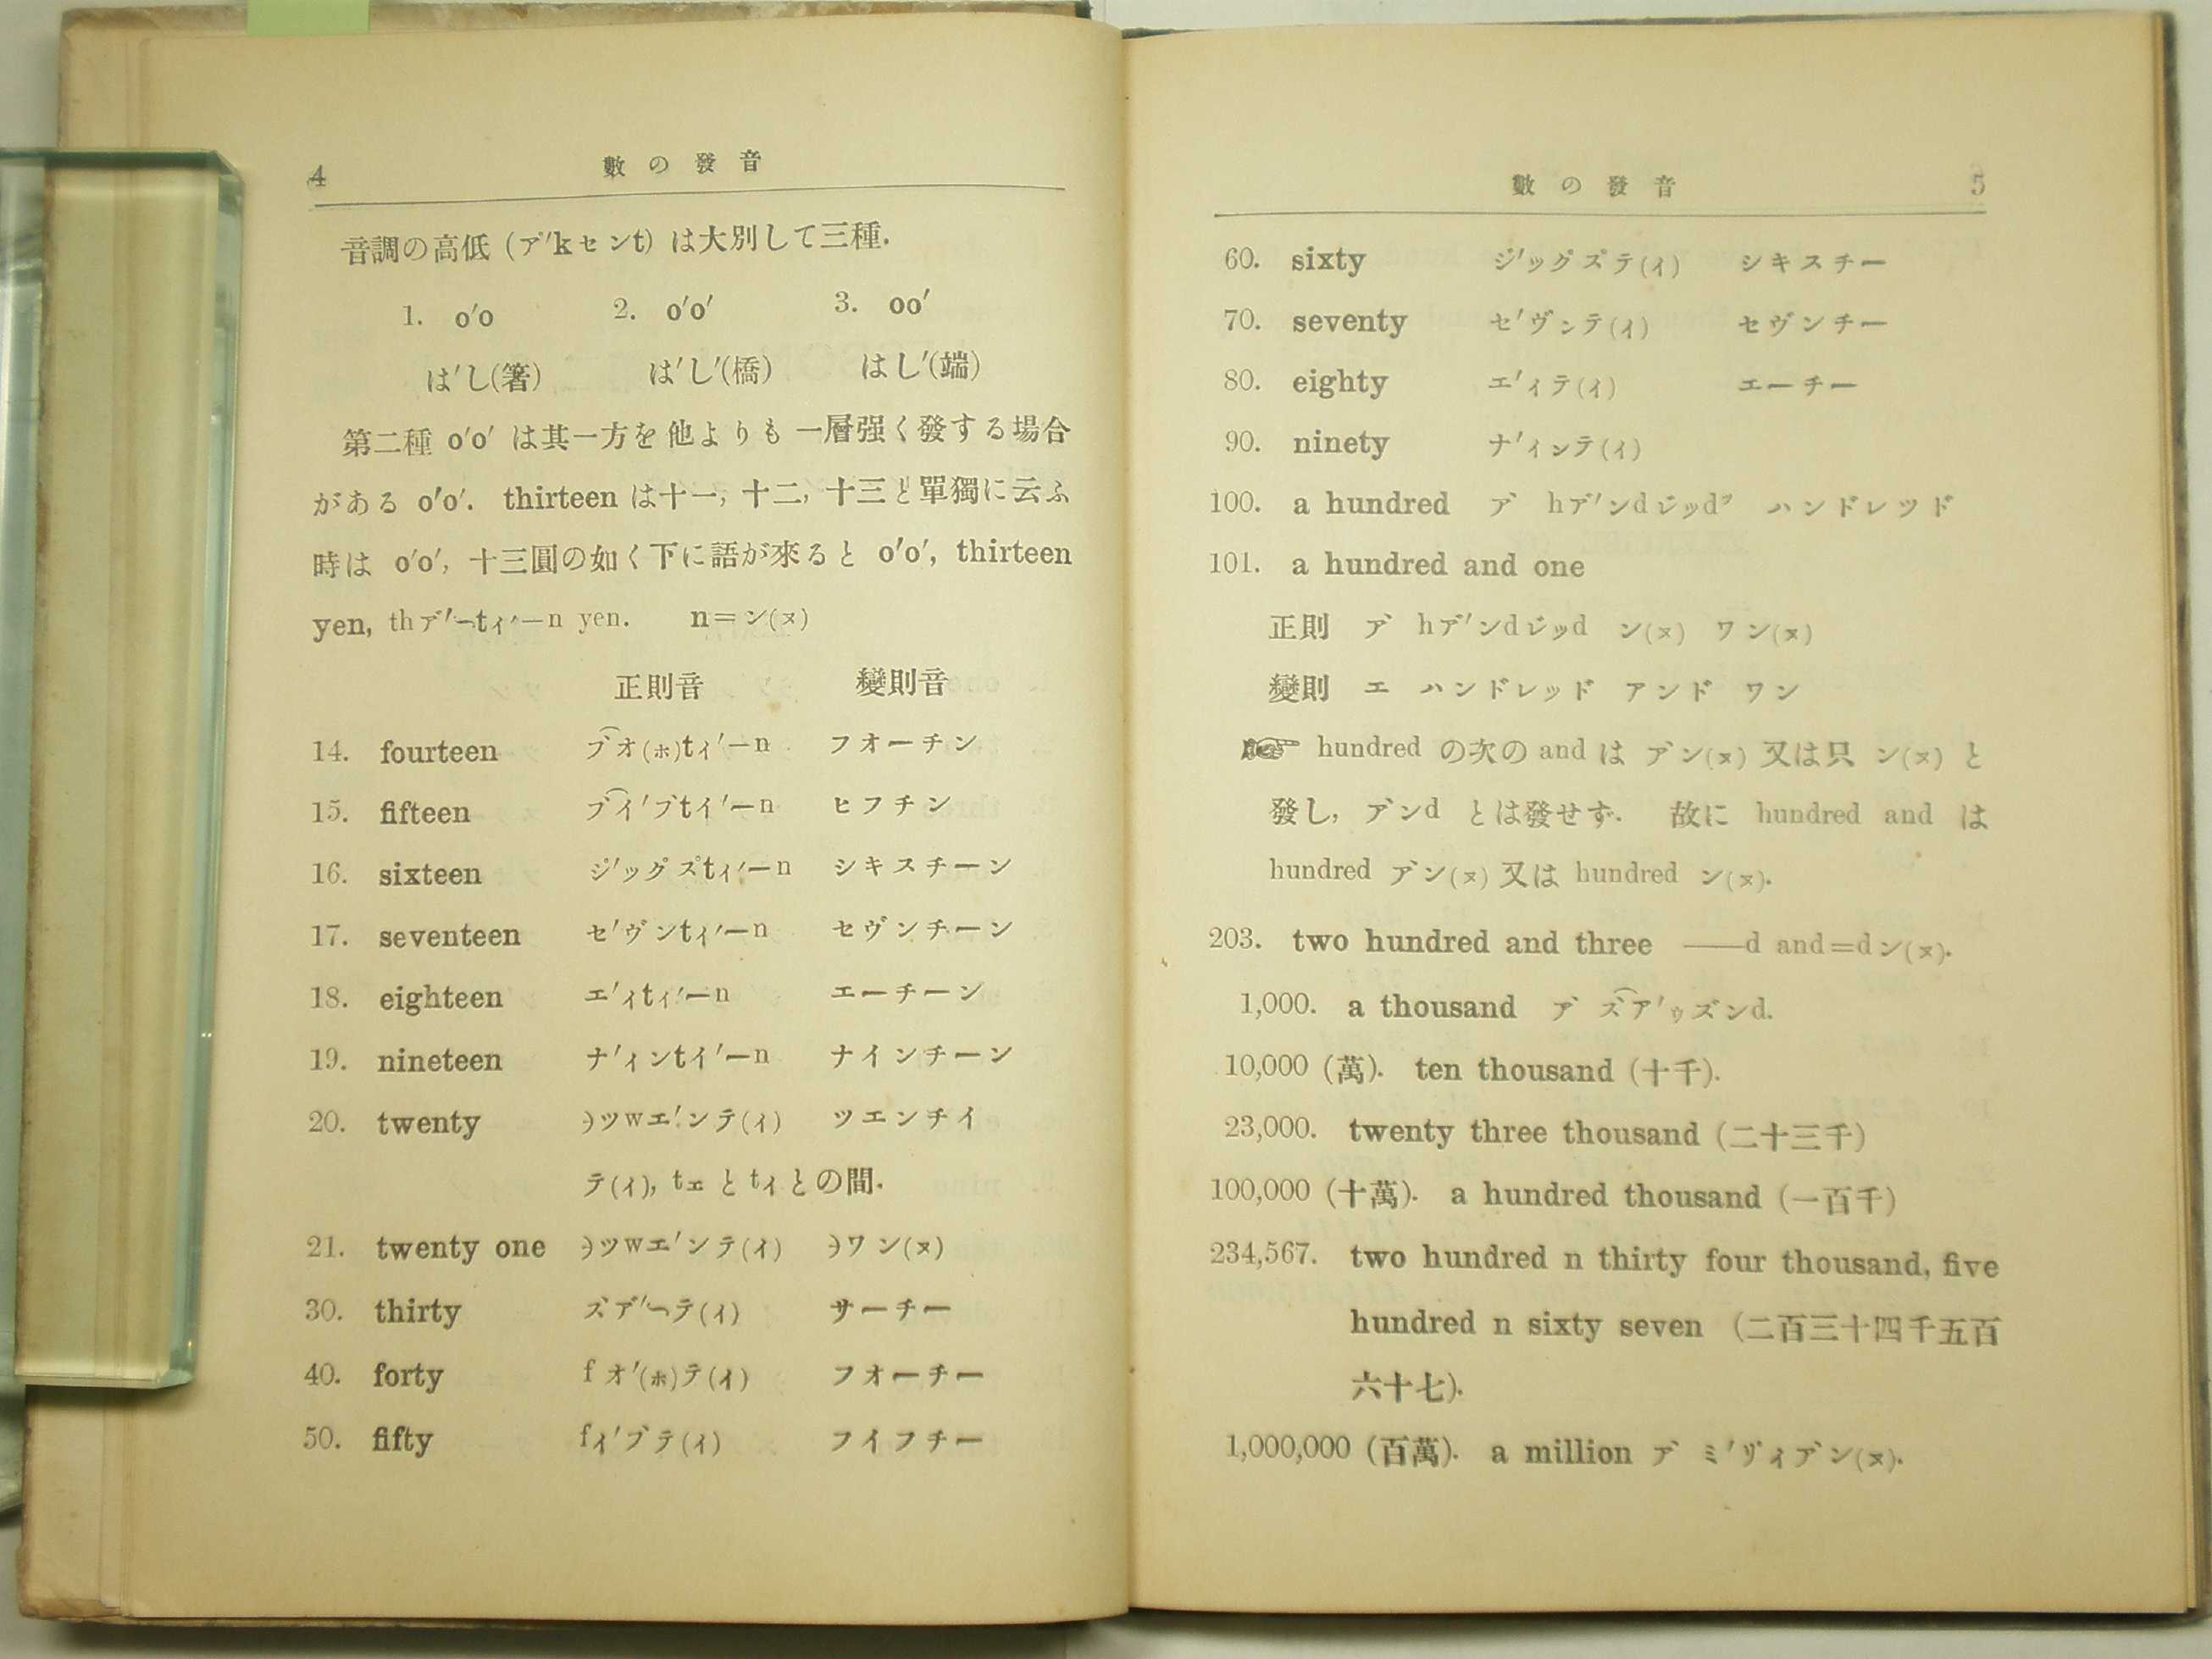 4 數の發音
音調の高低 (ア′kセンt) は大別して三種.
1. o′o 2. o′o′ 3. oo′
は′し(箸) は′し′(橋) はし′(端)
第二種 o′o′ は其一方を他よりも一層强く發する場合
がある o′o′. thirteen は十一, 十二, 十三と單獨に云ふ
時は o′o′, 十三圓の如く下に語が來ると o′o′, thirteen
yen, yen. n=ン(ヌ)
正則音 變則音
14. fourteen フオ(ホ)tイ′ーn フオーチン
15. fifteen フイ′フtイ′ーn ヒフチン
16. sixteen シキスチーン
17. seventeen セ′ヴンtイ′ーn セヴンチーン
18. eighteen エ′イtイ′ーn エーチーン
19. nineteen ナ′インtイ′ーn ナインチーン
20. twenty ツwエ′ンテ(イ) ツエンチイ
テ(イ), tエとtイとの間.
21. twenty one ツwエ′ンテ(イ) ワン(ヌ)
30. thirty サーチー
40. forty fオ′(ホ)テ(イ) フオーチー
50. fifty fイ′フテ(イ) フイフチー
數の發音 5
60. sixty シキスチー
70. seventy セ′ヴンテ(イ) セヴンチー
80. eighty エ′イテ(イ) エーチー
90. ninety ナ′インテ(イ)
100. a hundred ハンドレツド
101. a hundred and one
正則 ン(ヌ) ワン(ヌ)
變則 エ ハンドレッド アンド ワン
☞ hundred の次の and は アン(ヌ) 又は只 ン(ヌ) と
發し, アンd とは發せず. 故に hundred and は
hundred アン(ヌ) 又は hundred ン(ヌ).
203. two hundred and three ——d and=dン(ヌ).
1,000. a thousand ア ズア′ゥズンd.
10,000 (萬). ten thousand (十千).
23,000. twenty three thousand (二十三千)
100,000 (十萬). a hundred thousand (一百千)
234,567. two hundred n thirty four thousand, five
hundred n sixty seven (二百三十四千五百
六十七).
1,000,000 (百萬). a million